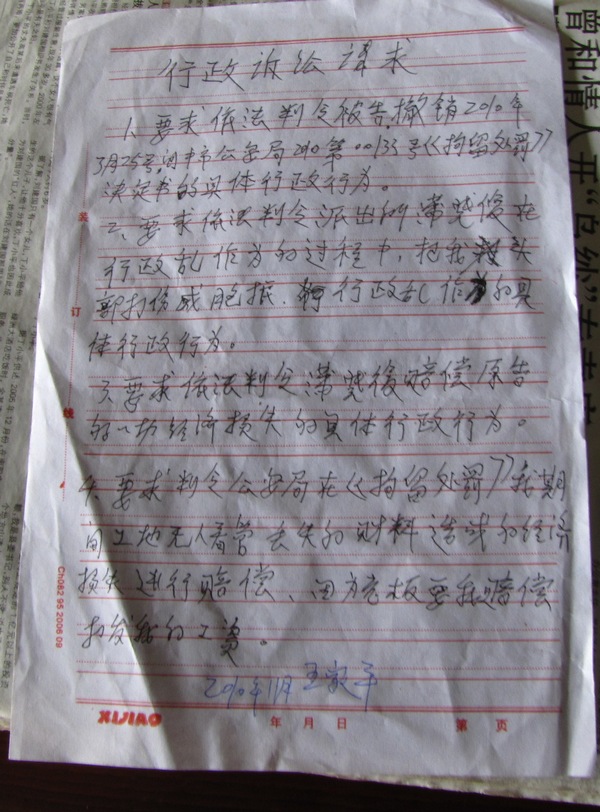 行政诉讼请求
1、要求依法判令被告撤销2010年
3月25号,阆中市公安局2010第00133号《拘留处罚》
决定书的具体行政行为。
二、要求依法判令派出所蒲楚俊在
行政乱作为的过程中,把我头
部打伤成脑抵、行政乱作为的具
体行政行为。
3、要求依法判令蒲楚俊赔偿原告
的一切经济损失的具体行政行为。
4、要求判令公安局在《拘留处罚》我期
间工地无人看管丢失的财料造成的经济
损失进行赔偿、因为老板要我赔偿
扣发我的工资。
2010年11月
装
订
线
Ch082 95 2006 09
XIJIAO 年 月 日 第 页
曾和情人开“良外”